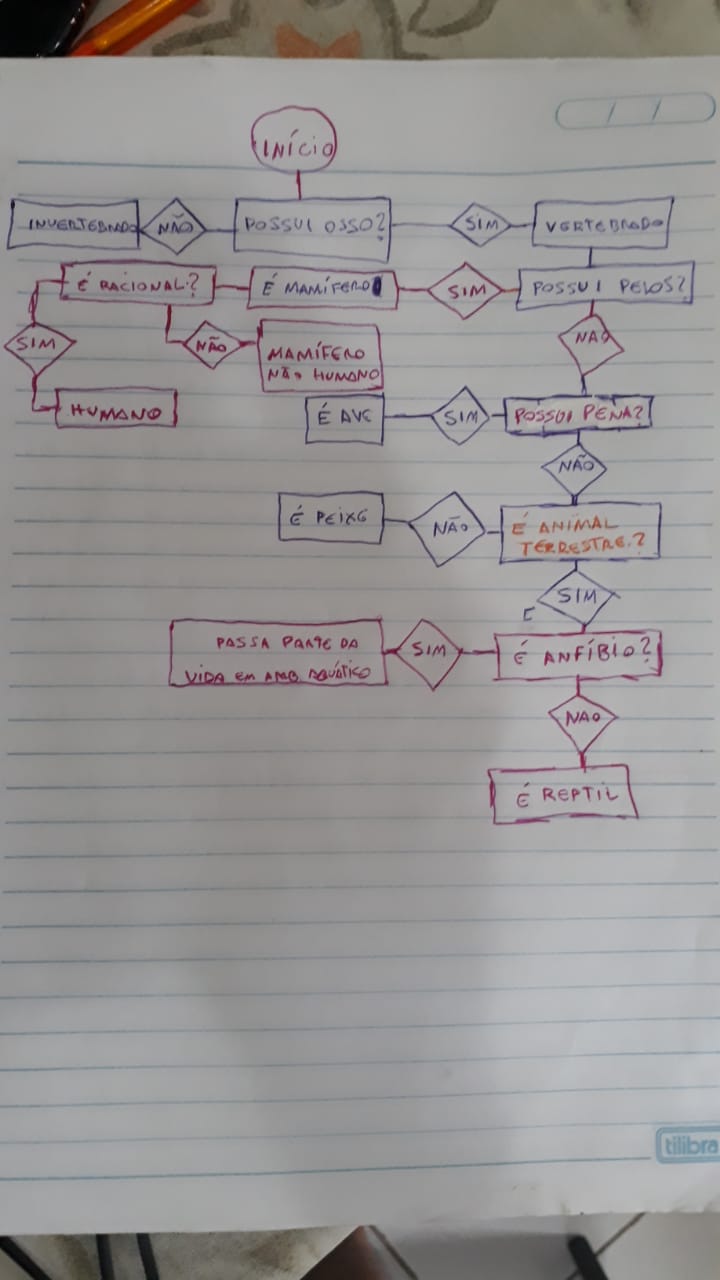 INÍCIO
INVERTEBRADO
NÃO
POSSUI OSSO?
SIM
VERTEBRADO
É RACIONAL?
É MAMÍFERO
SIM
POSSUI PELOS?
SIM
NÃO
MAMÍFERO
NÃO HUMANO
NAO
HUMANO
É AVE
SIM
POSSUI PENA?
NÃO
É PEIXE
NÃO
É ANIMAL
TERRESTRE?
SIM
PASSA PARTE DA
VIDA EM AMB. AQUÁTICO
SIM
É ANFÍBIO?
NAO
É REPTIL
tilibra